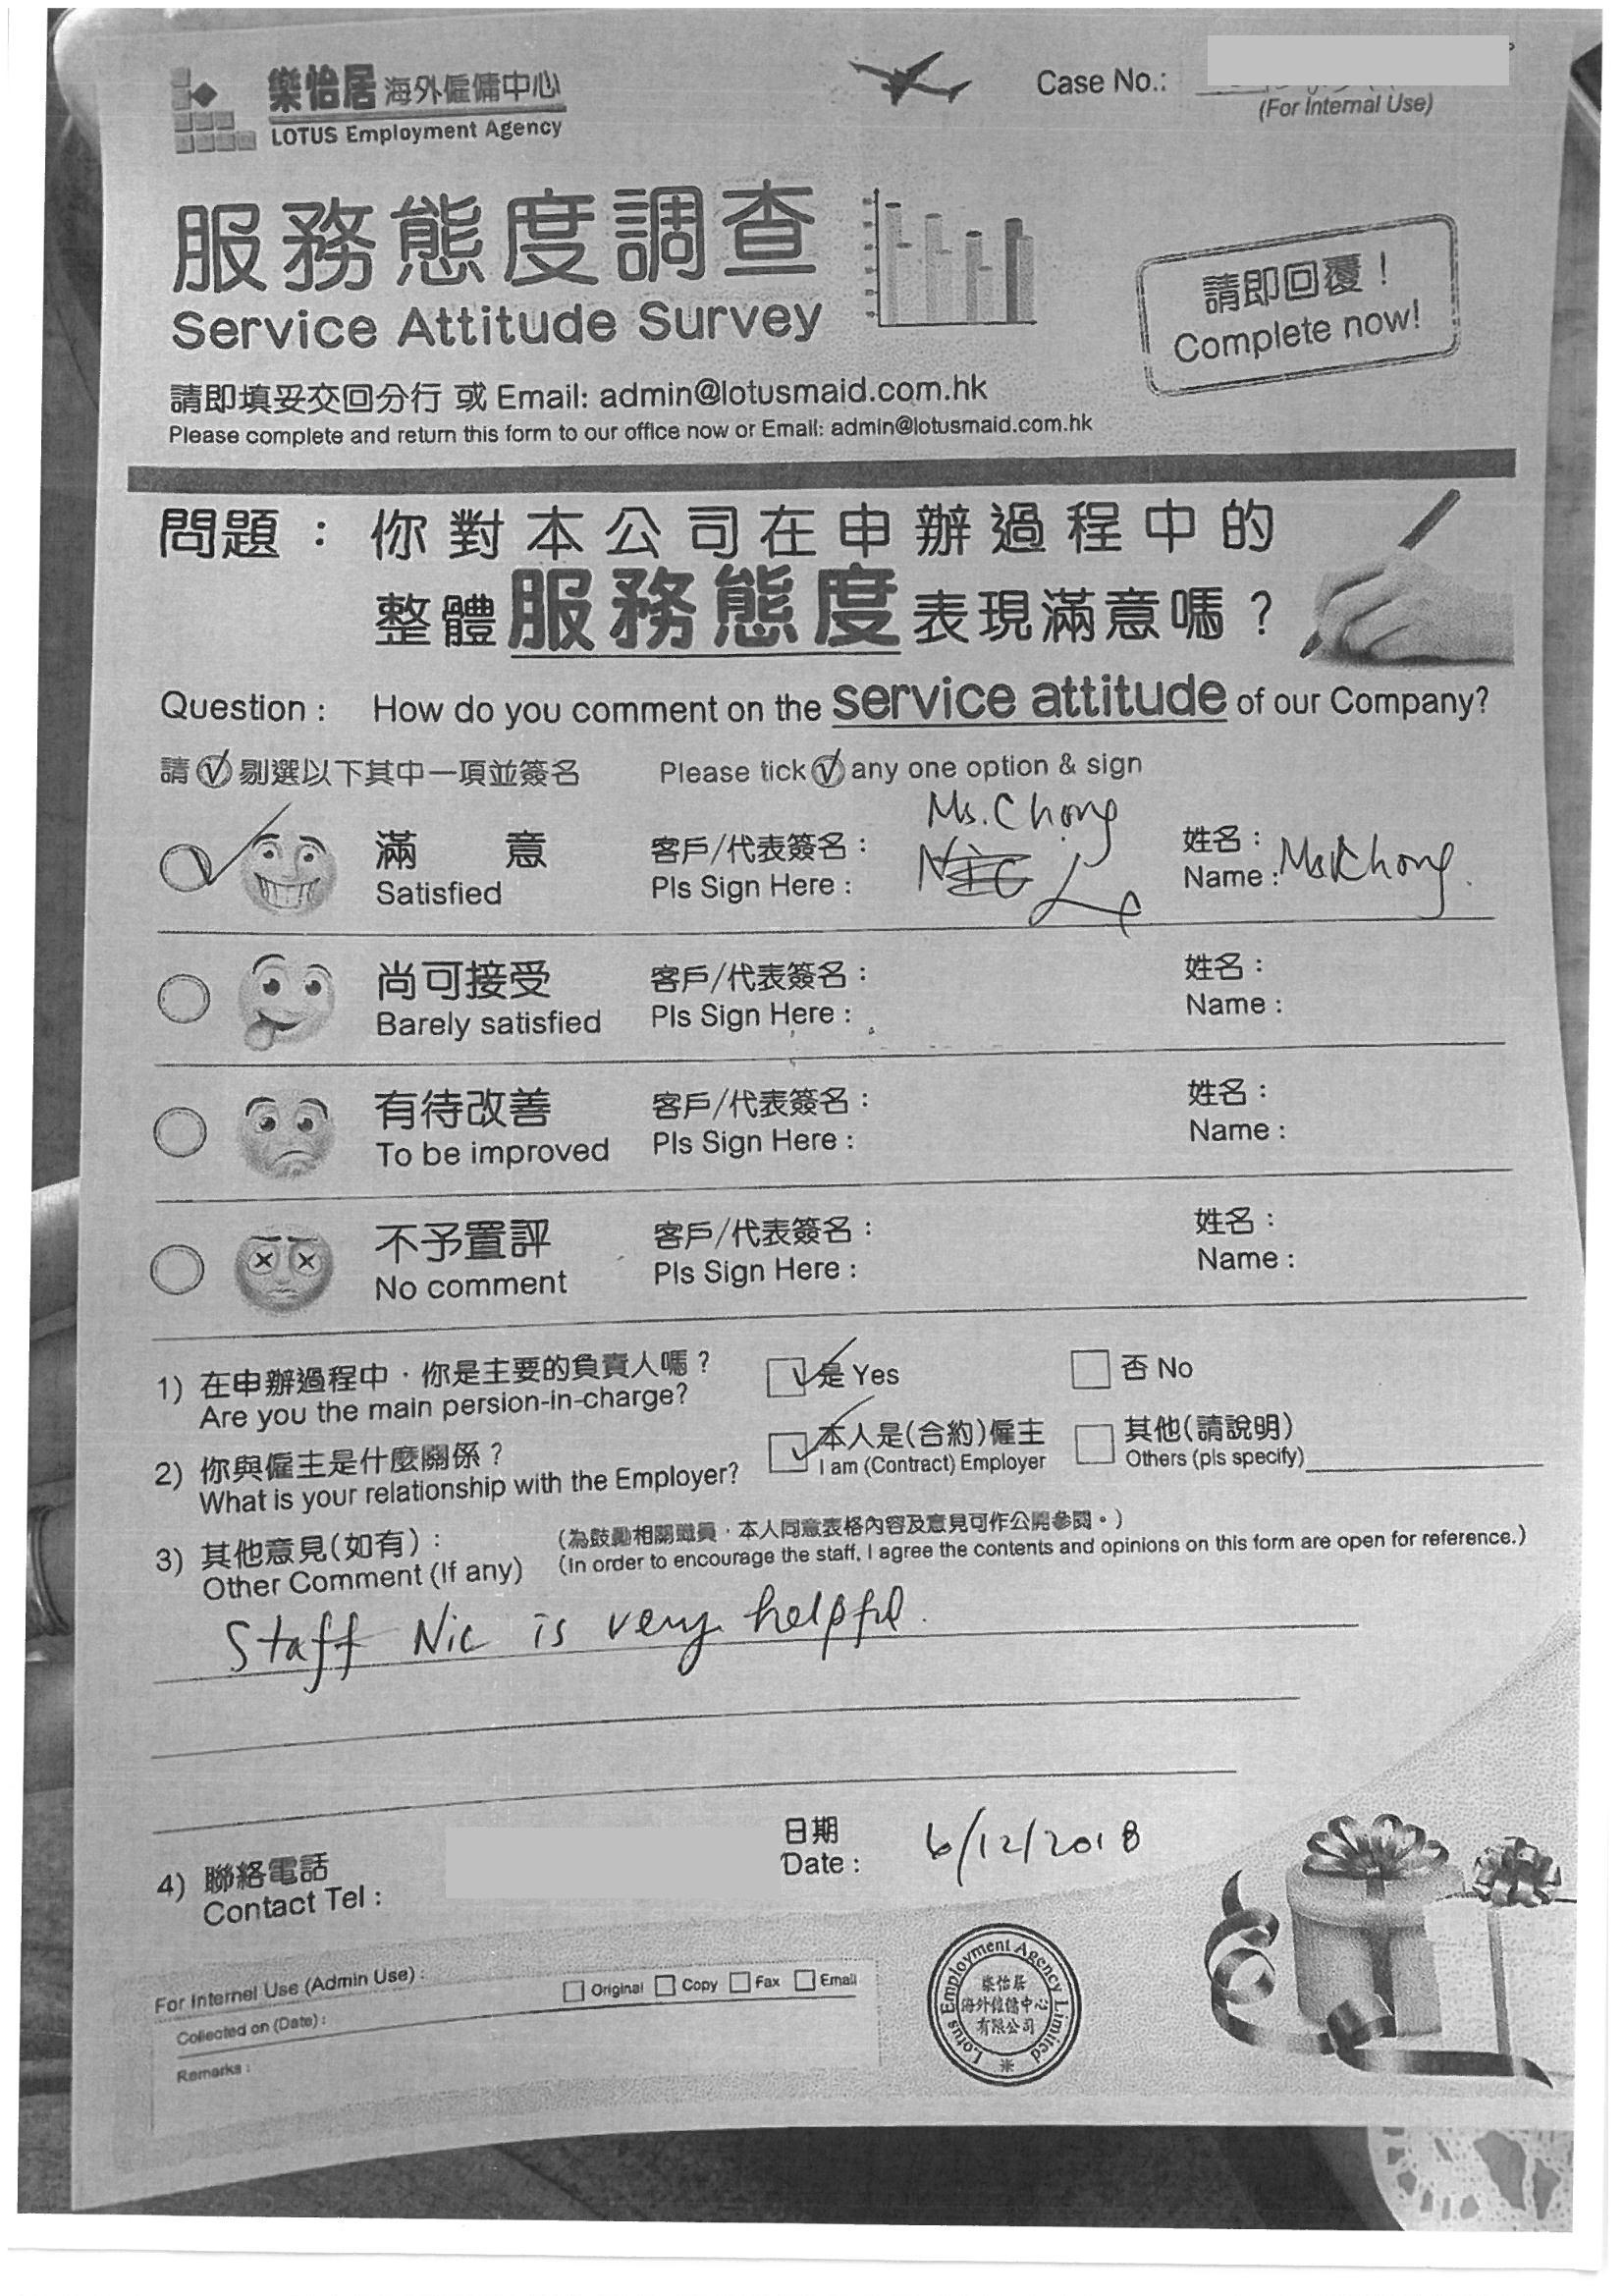 樂怡居海外僱傭中心
LOTUS Employment Agency
Case No.:
(For Internal Use)
服務態度調查
Service Attitude Survey
請即回覆！
Complete now!
請即填妥交回分行 或 Email: admin@lotusmaid.com.hk
Please complete and return this form to our office now or Email: admin@lotusmaid.com.hk
問題：你對本公司在申辦過程中的
整體服務態度表現滿意嗎？
Question : How do you comment on the service attitude of our Company?
請 剔選以下其中一項並簽名 Please tick any one option & sign
Ms. Chong
滿 意 客戶/代表簽名： 姓名：
Satisfied Pls Sign Here : Nic Name : Ms Chong.
尚可接受 客戶/代表簽名： 姓名：
Barely satisfied Pls Sign Here : Name :
有待改善 客戶/代表簽名： 姓名：
To be improved Pls Sign Here : Name :
不予置評 客戶/代表簽名： 姓名：
No comment Pls Sign Here : Name :
1) 在申辦過程中，你是主要的負責人嗎？ 是 Yes 否 No
Are you the main persion-in-charge?
2) 你與僱主是什麼關係？ 本人是(合約)僱主 其他(請說明)
What is your relationship with the Employer? I am (Contract) Employer Others (pls specify)
3) 其他意見(如有)： (為鼓勵相關職員，本人同意表格內容及意見可作公開參閱。)
Other Comment (If any) (In order to encourage the staff, I agree the contents and opinions on this form are open for reference.)
Staff Nic is very helpful.
4) 聯絡電話 日期
Contact Tel : Date : 6/12/2018
For Internel Use (Admin Use) : Original Copy Fax Email
Collected on (Date) :
Remarks :
Lotus Employment Agency Limited
樂怡居
海外僱傭中心
有限公司